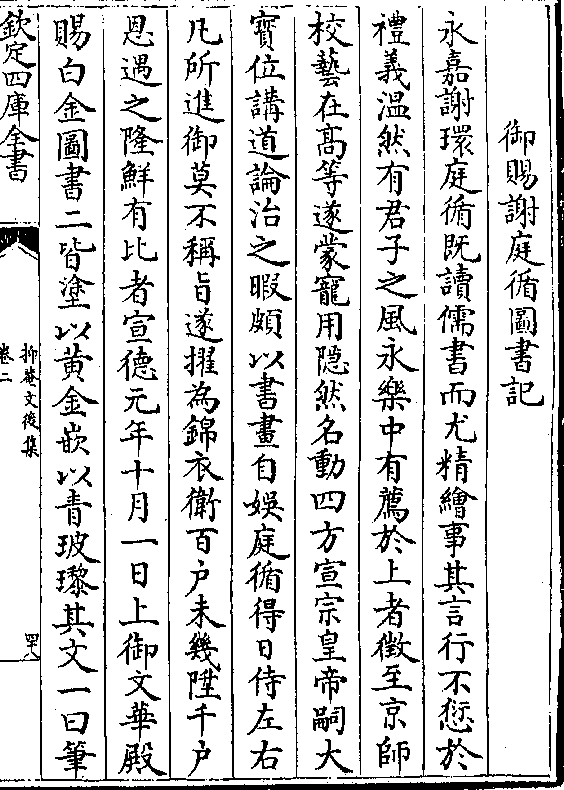 御賜謝庭循圖書記
永嘉謝環庭循既讀儒書而尤精繪事其言行不愆於
禮義温然有君子之風永樂中有薦於上者徵至京師
校藝在髙等遂蒙寵用隐然名動四方宣宗皇帝嗣大
寳位講道論治之暇頗以書畫自娱庭循得日侍左右
凡所進御莫不稱旨遂擢為錦衣衛百户未幾陞千户
恩遇之隆鮮有比者宣德元年十月一日上御文華殿
賜白金圖書二皆塗以黄金嵌以青玻瓈其文一曰筆
欽定四庫全書
抑菴文後集
卷二